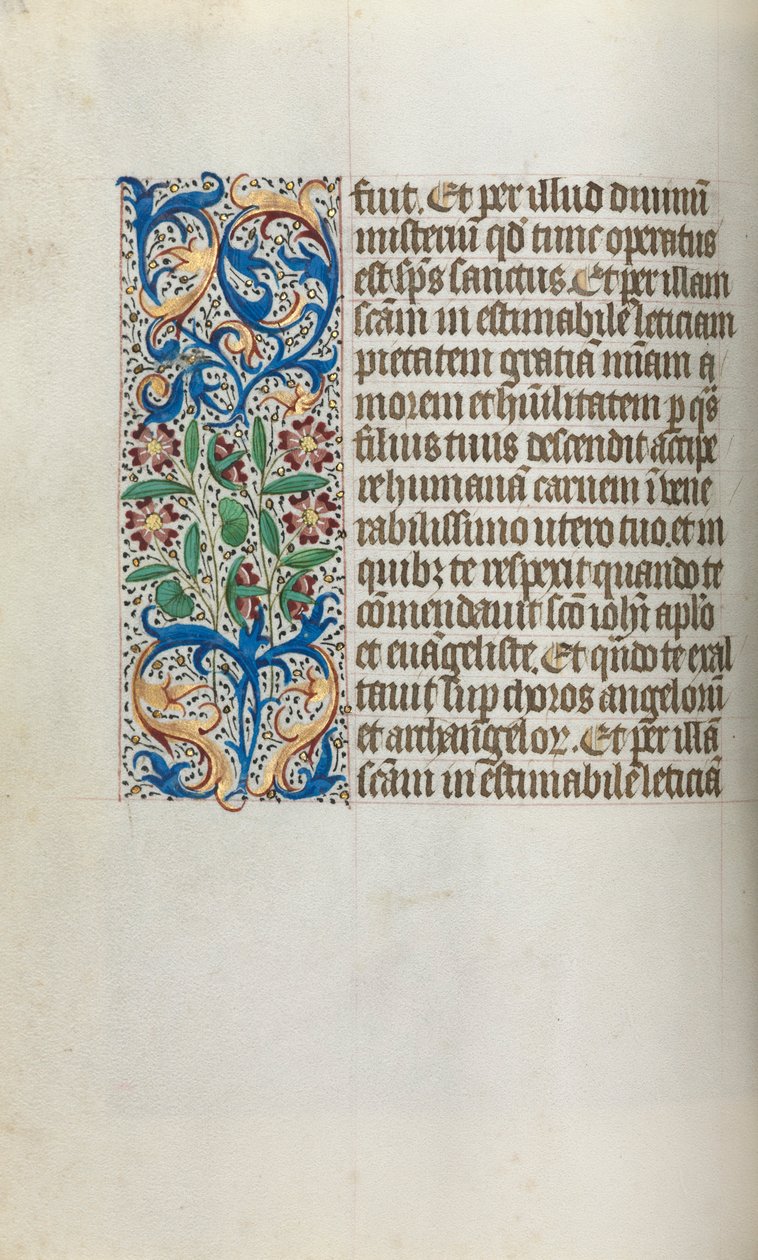 fuit. Et per illud diuinū
misteriū qd̄ tunc operatus
est sp̄s sanctus. Et per illam
scām in estimabilē leticiam
pietatem gratiā mīam a
morem et hūilitatem p q̄s
filius tuus descendit accipe
re humanā carnem ī vene
rabilissimo utero tuo. et in
quibꝫ te respexit quando te
cōmendauit scō iohī aplo
et euāgeliste. Et qn̄do te exal
tauit sup choros angelorū
et archangeloꝝ. Et per illā
scām in estimabilē leticiā